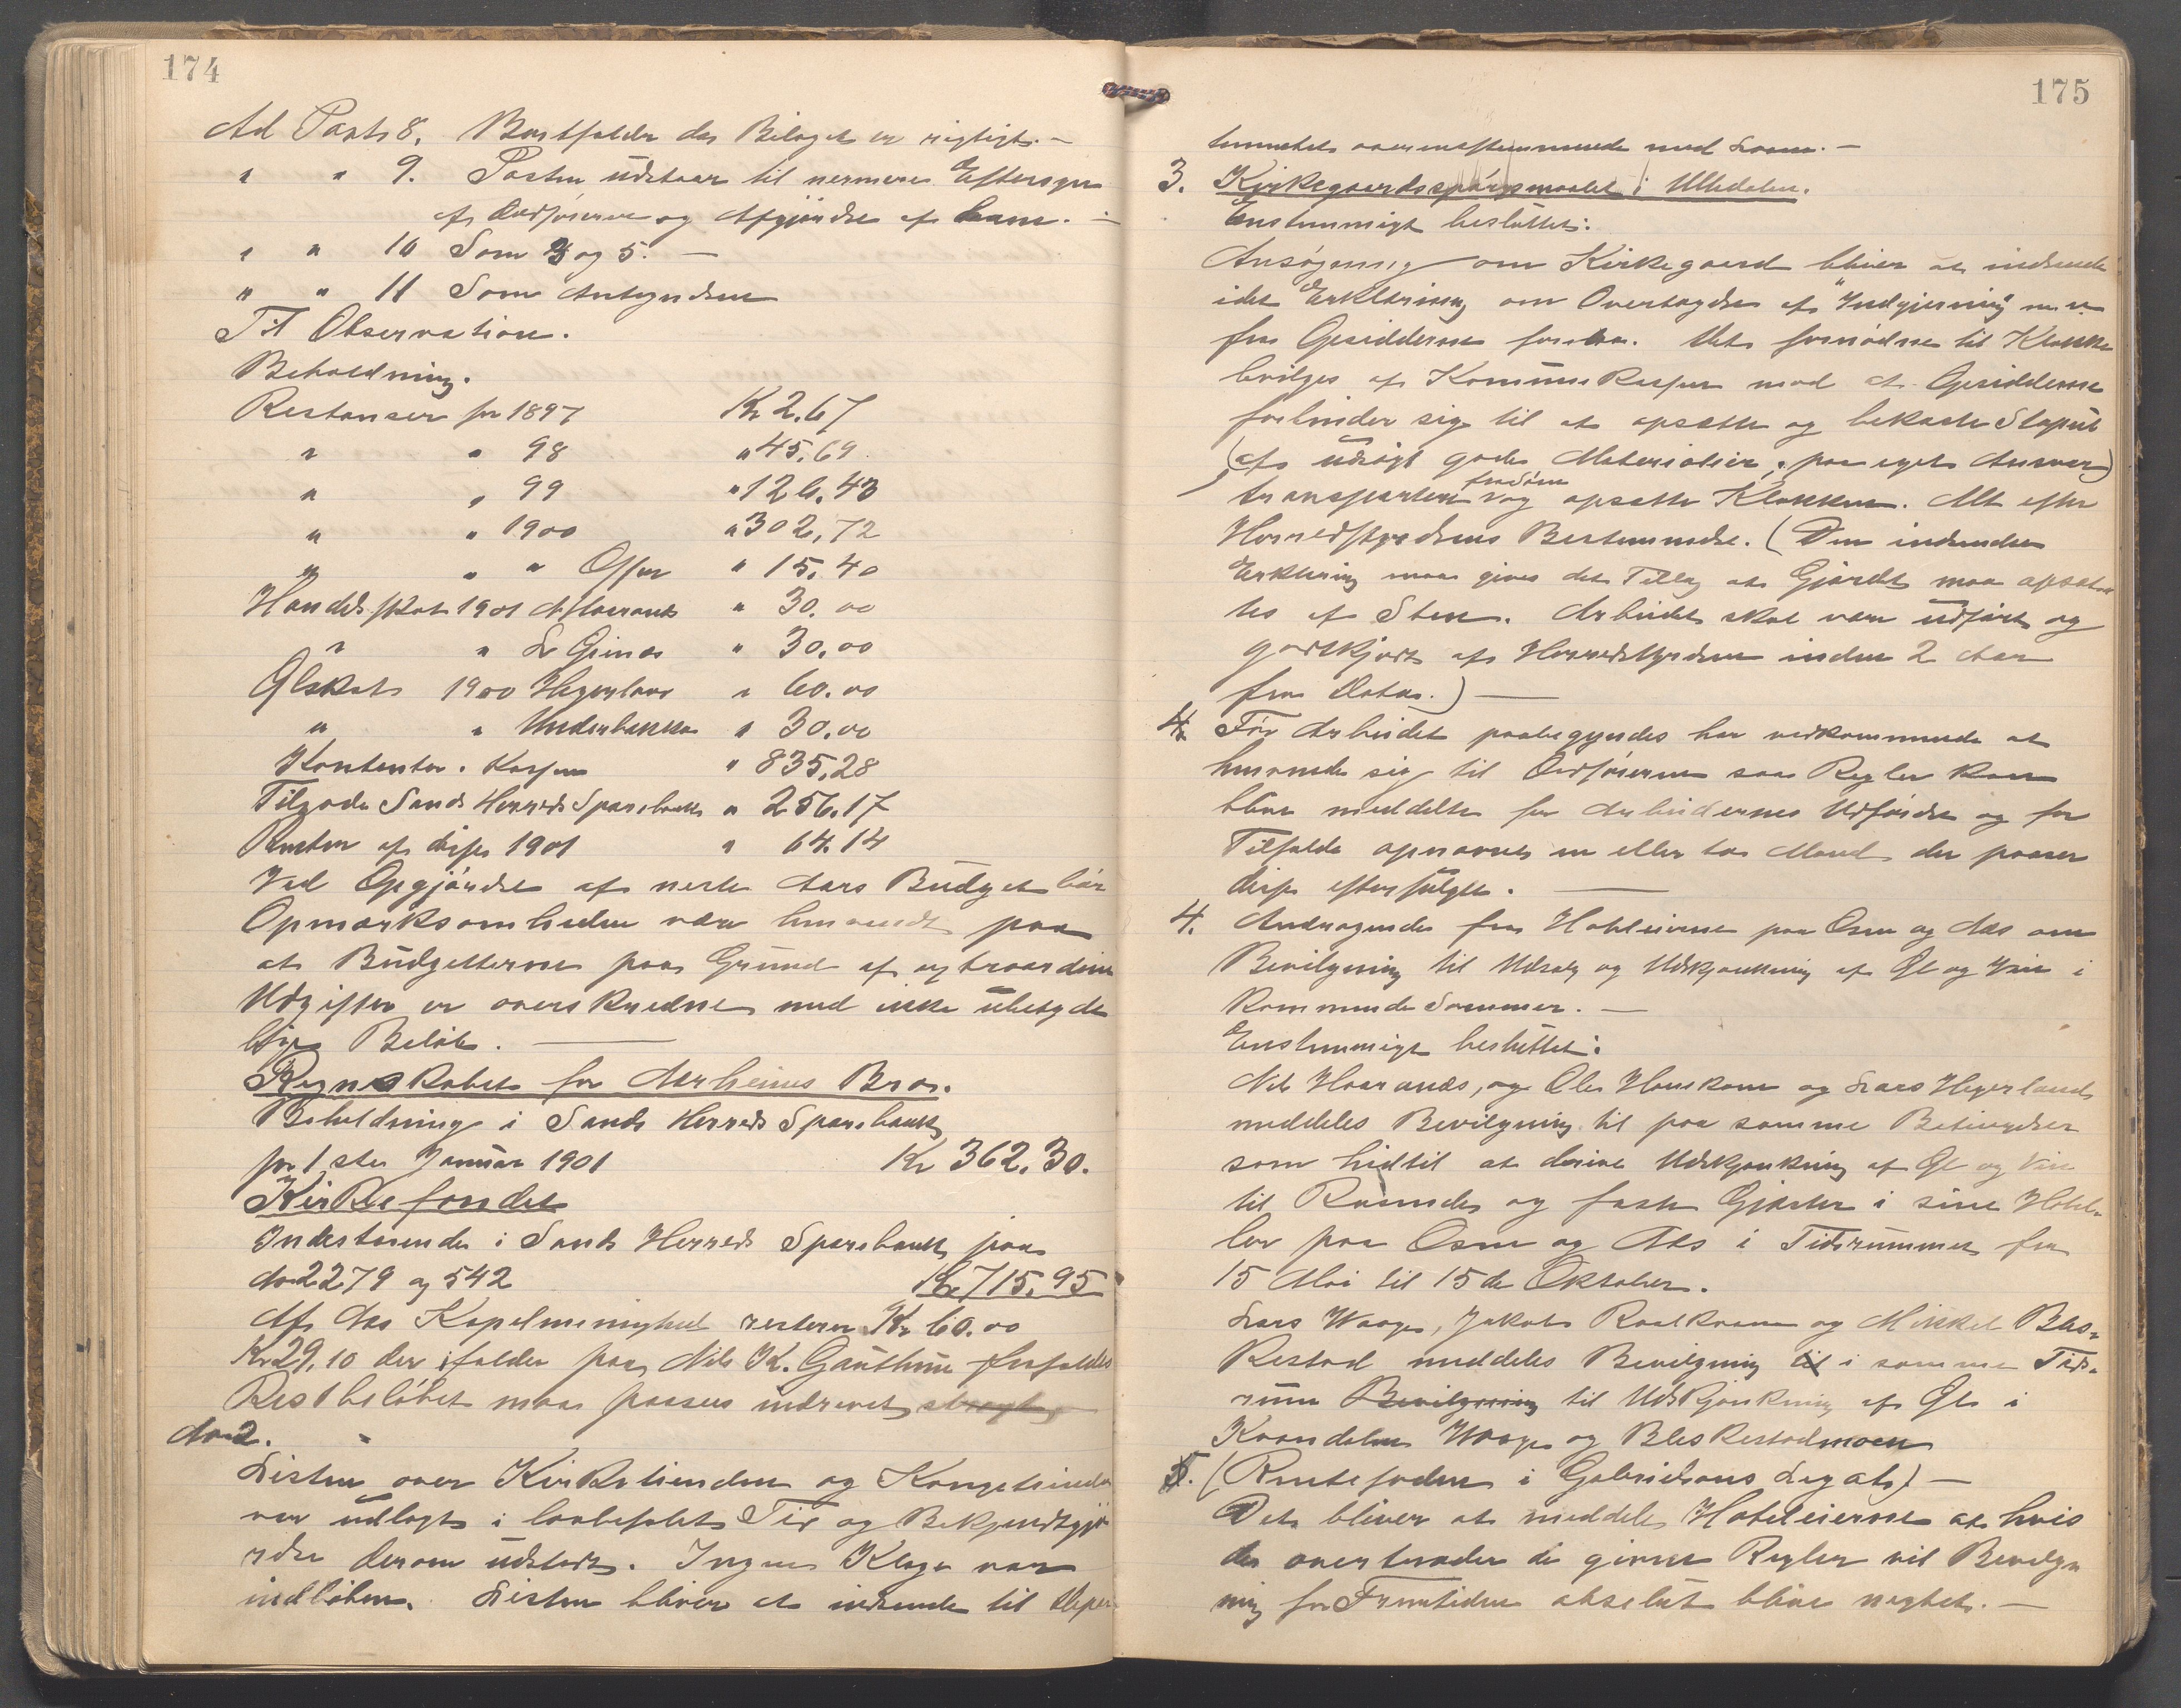 174
Ad Post 8. Bortfalder da Bilaget er rigtigt. —
" " 9. Posten udstaar til nermere Eftersyn
af Ordføreren og Afgjørelse af ham. —
" " 10 Som 3 og 5. —
" " 11 Som Antegnelsen
Til Observation.
Beholdning.
Restanser for 1897 Kr 2.67
" " 98 " 45.69
" " 99 " 126.43
" " 1900 " 302,72
" " " Offer " 15.40
Handelsskat 1901 " 30.00
" " " 30.00
Ølskat 1900 Hegerland " 60.00
" " Underbakke " 30.00
Kontenter. Kassen " 835,28
Tilgode Sands Herreds Sparebank " 256.17
Renten af disse 1901 " 64.14
Ved Opgjørelse af neste Aars Budget bør
Opmærksomheden være henvendt paa
at Budgetterne paa Grund af extraordinære
Udgifter er overskredne med ikke ubetyde
lige Beløb. —
Regnskabet for Aarheims Bro.
Beholdning i Sands Herreds Sparebank
pr 1ste Januar 1901 Kr 362.30.
Kirkefondet
Indestaaende i Sands Herreds Sparebank paa
No 2279 og 542 Kr 715,95
Af Aas Kapelmenighed resterer Kr 60.00
Kr 29,10 der falder paa Nils K. Gauthun frafaldes
Restbeløbet maa passes indrevet strengt
No 2.
Listen over Kirketienden og Kongetienden
var udlagt i lovbefalet Tid og Bekjendtgjø
relse derom udstedt. Ingen Klage var
indløben. Listen bliver at indsende til Depar
175
tementet overensstemmende med Loven. —
3. Kirkegaardsspørgsmaalet i Ulladalen.
Enstemmigt besluttet:
Ansøgning om Kirkegaard bliver at indsende
idet Erklæring om Overtagelse af "Indgjerning" m.v.
fra Opsidderne foreligger. Det fornødne til Klokke
bevilges af Kommunekassen mod at Opsidderne
forbinder sig til at opsætte og bekoste Støpul
(af udsøgt gode Materialier, paa eget Ansvar)
transportere fradøm og opsette Klokken. Alt efter
Herredsstyrelsens Bestemmelse. (Den indsendte
Erklæring maa gives det Tillæg at Gjærdet maa opsæt
tes af Sten. Arbeidet skal være udført og
godkjendt af Herredsstyrelsen inden 2 Aar
fra Dato.) —
4. Før Arbeidet paabegyndes har vedkommende at
henvende sig til Ordføreren saa Regler kan
blive meddelte for Arbeidernes Udførelse og for
Tilfælde opnævnes en eller to Mænd der paaser
disse efterfulgte. —
4. Andragende fra Hoteleierne paa Osen og Aas om
Bevilgning til Udsalg og Udskjænkning af Øl og Vin i
kommende Sommer. —
Enstemmigt besluttet:
Nils Haarandes, og Ole Hauskam og Lars Hegerland
meddeles Bevilgning til paa samme Betingelser
som hidtil at drive Udskjænkning af Øl og Vin
til Reisende og faste Gjæster i sine Hotel-
ler paa Osen og Aas i Tidsrummet fra
15 Mai til 15de Oktober.
Lars Waage, Jakob Raalkvam og Mikkel Bles-
kestad meddeles Bevilgning til i samme Tids-
rum Bevilgning til Udskjænkning af Øl i
Kvandalen Waage og Bleskestadmoen
5. (Rentefoden i Gabrielsens Legat) —
Det bliver at meddele Hoteleierne at hvis
de overtræder de givne Regler vil Bevilg
ning for Fremtiden absolut blive negtet. —